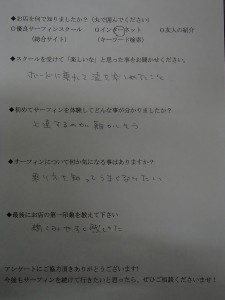 ◆お店を何で知りましたか？（丸で囲んでください）
○優良サーフィンスクール ○インターネット ○友人の紹介
（総合サイト） （キーワード検索）
◆スクールを受けて「楽しいな」と思った事をお聞かせください。
ボードに乗れて波で楽しめたこと
◆初めてサーフィンを体験してどんな事が分かりましたか？
上達するのが難しそう
◆サーフィンについて何か気になる事はありますか？
乗り方を知ってうまくなりたい
◆最後にお店の第一印象を教えて下さい
親しみやすく感じた
アンケートにご協力頂きありがとうございます！
今後もサーフィンを続けて行きたいと思ったら、ぜひご相談くださいませ！